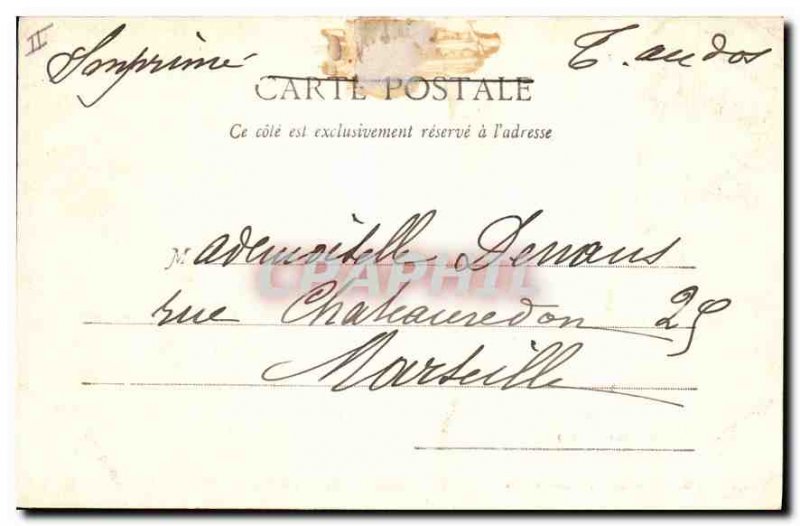 II
Imprimé T. au dos
CARTE POSTALE
Ce côté est exclusivement réservé à l'adresse
Mademoiselle Denans
CPAPHIL
rue Chateauredon 25
Marseille